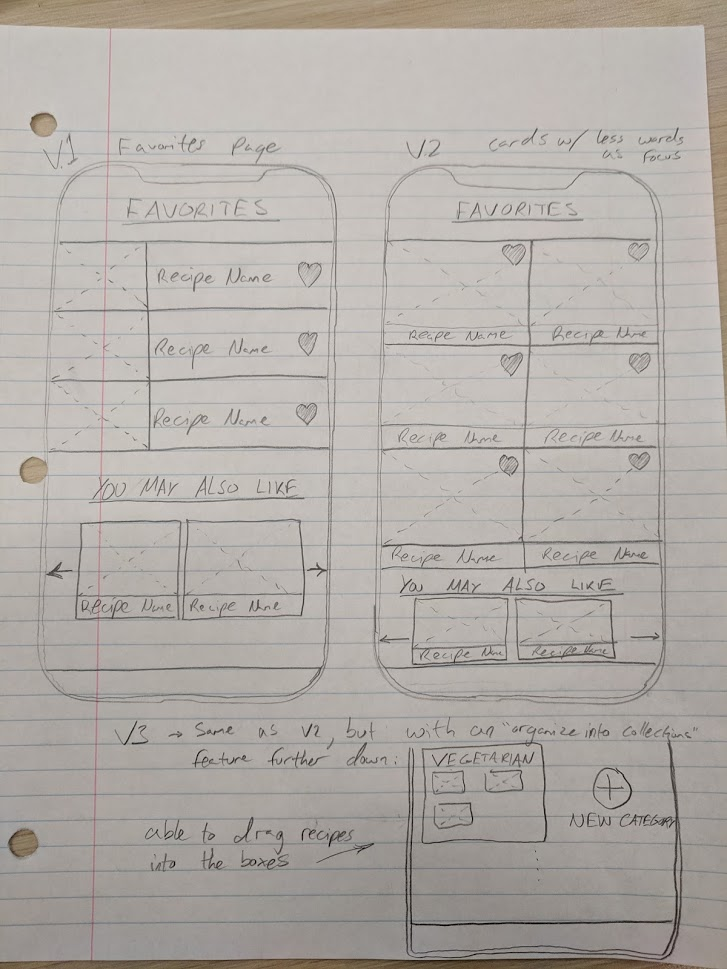 V.1 Favorites Page
FAVORITES
Recipe Name
Recipe Name
Recipe Name
YOU MAY ALSO LIKE
Recipe Name Recipe Name
V.2 cards w/ less words
as focus
FAVORITES
Recipe Name Recipe Name
Recipe Name Recipe Name
Recipe Name Recipe Name
YOU MAY ALSO LIKE
Recipe Name Recipe Name
V3 → Same as V2, but with an "organize into collections"
feature further down:
able to drag recipes
into the boxes
VEGETARIAN
NEW CATEGORY